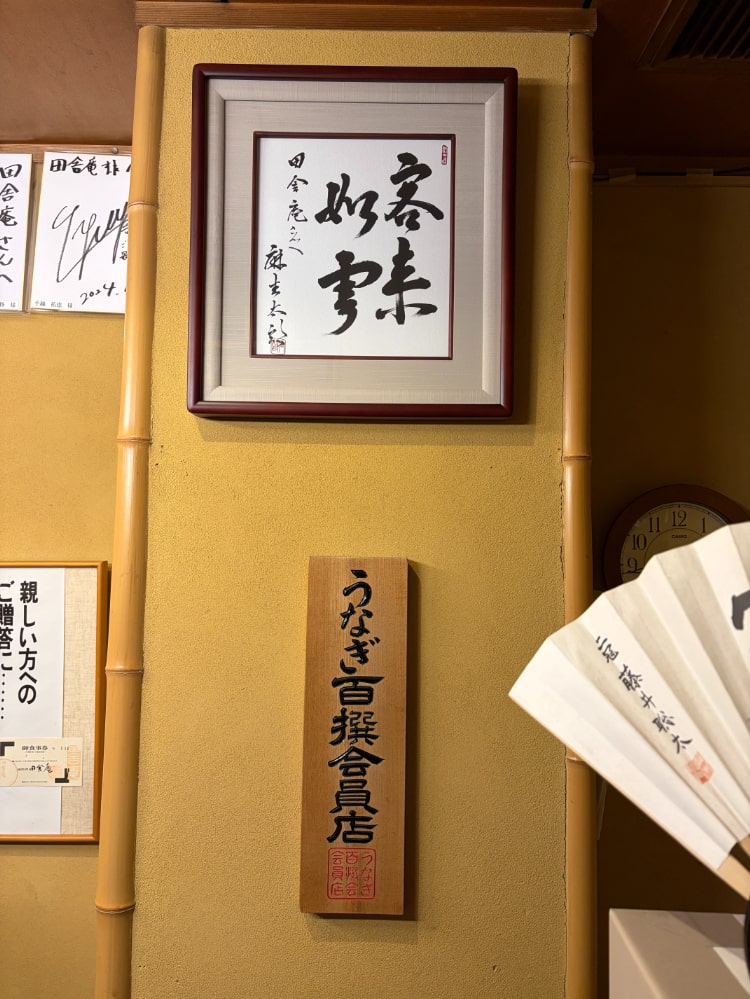 客来
如雲
田舎庵さんへ
麻生太郎
うなぎ百撰会員店
うなぎ
百撰会
会員店
田舎庵さんへ
田舎庵
2024.
親しい方への
ご贈答に……
御食事券
田舎庵
10
11
12
1
9
CASIO
二冠
藤井聡太